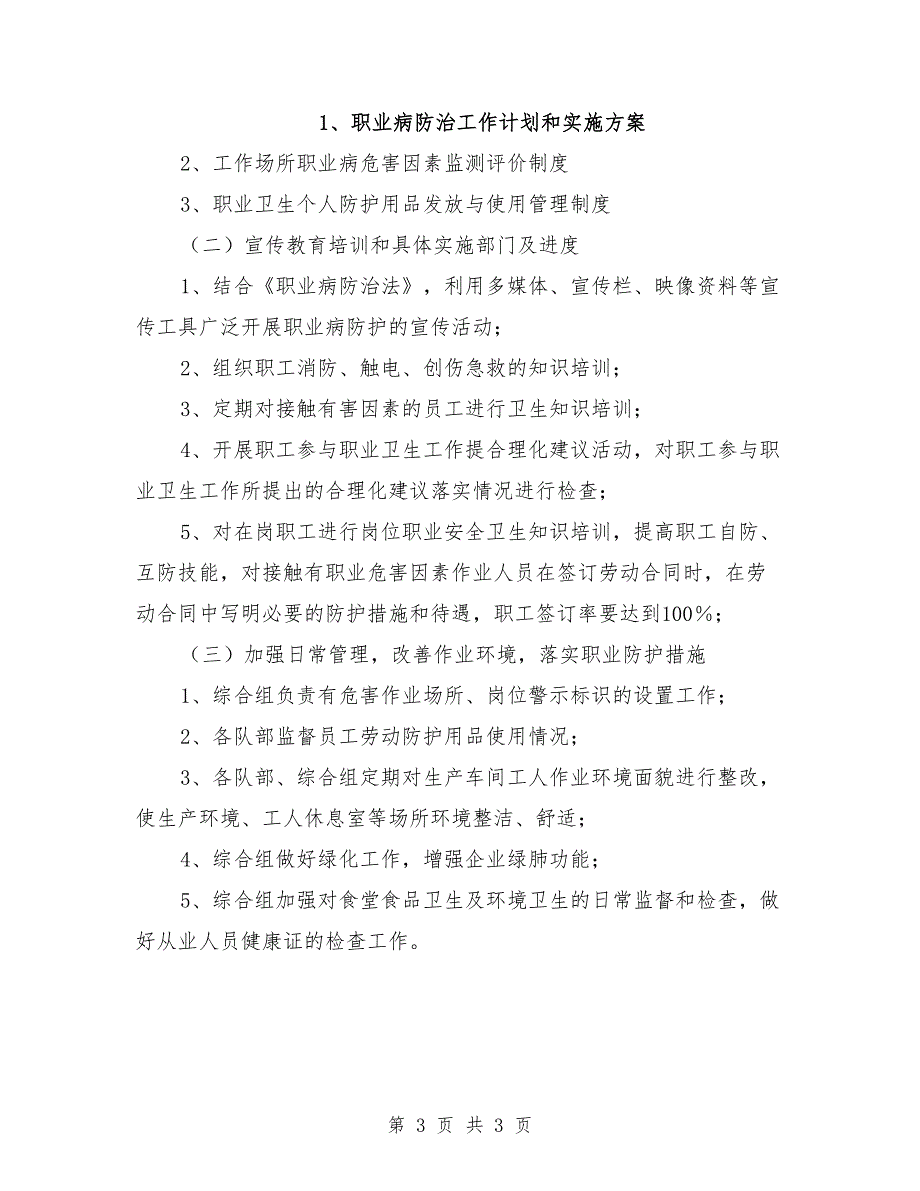 1、职业病防治工作计划和实施方案
2、工作场所职业病危害因素监测评价制度
3、职业卫生个人防护用品发放与使用管理制度
（二）宣传教育培训和具体实施部门及进度
1、结合《职业病防治法》，利用多媒体、宣传栏、映像资料等宣
传工具广泛开展职业病防护的宣传活动；
2、组织职工消防、触电、创伤急救的知识培训；
3、定期对接触有害因素的员工进行卫生知识培训；
4、开展职工参与职业卫生工作提合理化建议活动，对职工参与职
业卫生工作所提出的合理化建议落实情况进行检查；
5、对在岗职工进行岗位职业安全卫生知识培训，提高职工自防、
互防技能，对接触有职业危害因素作业人员在签订劳动合同时，在劳
动合同中写明必要的防护措施和待遇，职工签订率要达到100％；
（三）加强日常管理，改善作业环境，落实职业防护措施
1、综合组负责有危害作业场所、岗位警示标识的设置工作；
2、各队部监督员工劳动防护用品使用情况；
3、各队部、综合组定期对生产车间工人作业环境面貌进行整改，
使生产环境、工人休息室等场所环境整洁、舒适；
4、综合组做好绿化工作，增强企业绿肺功能；
5、综合组加强对食堂食品卫生及环境卫生的日常监督和检查，做
好从业人员健康证的检查工作。
第 3 页 共 3 页